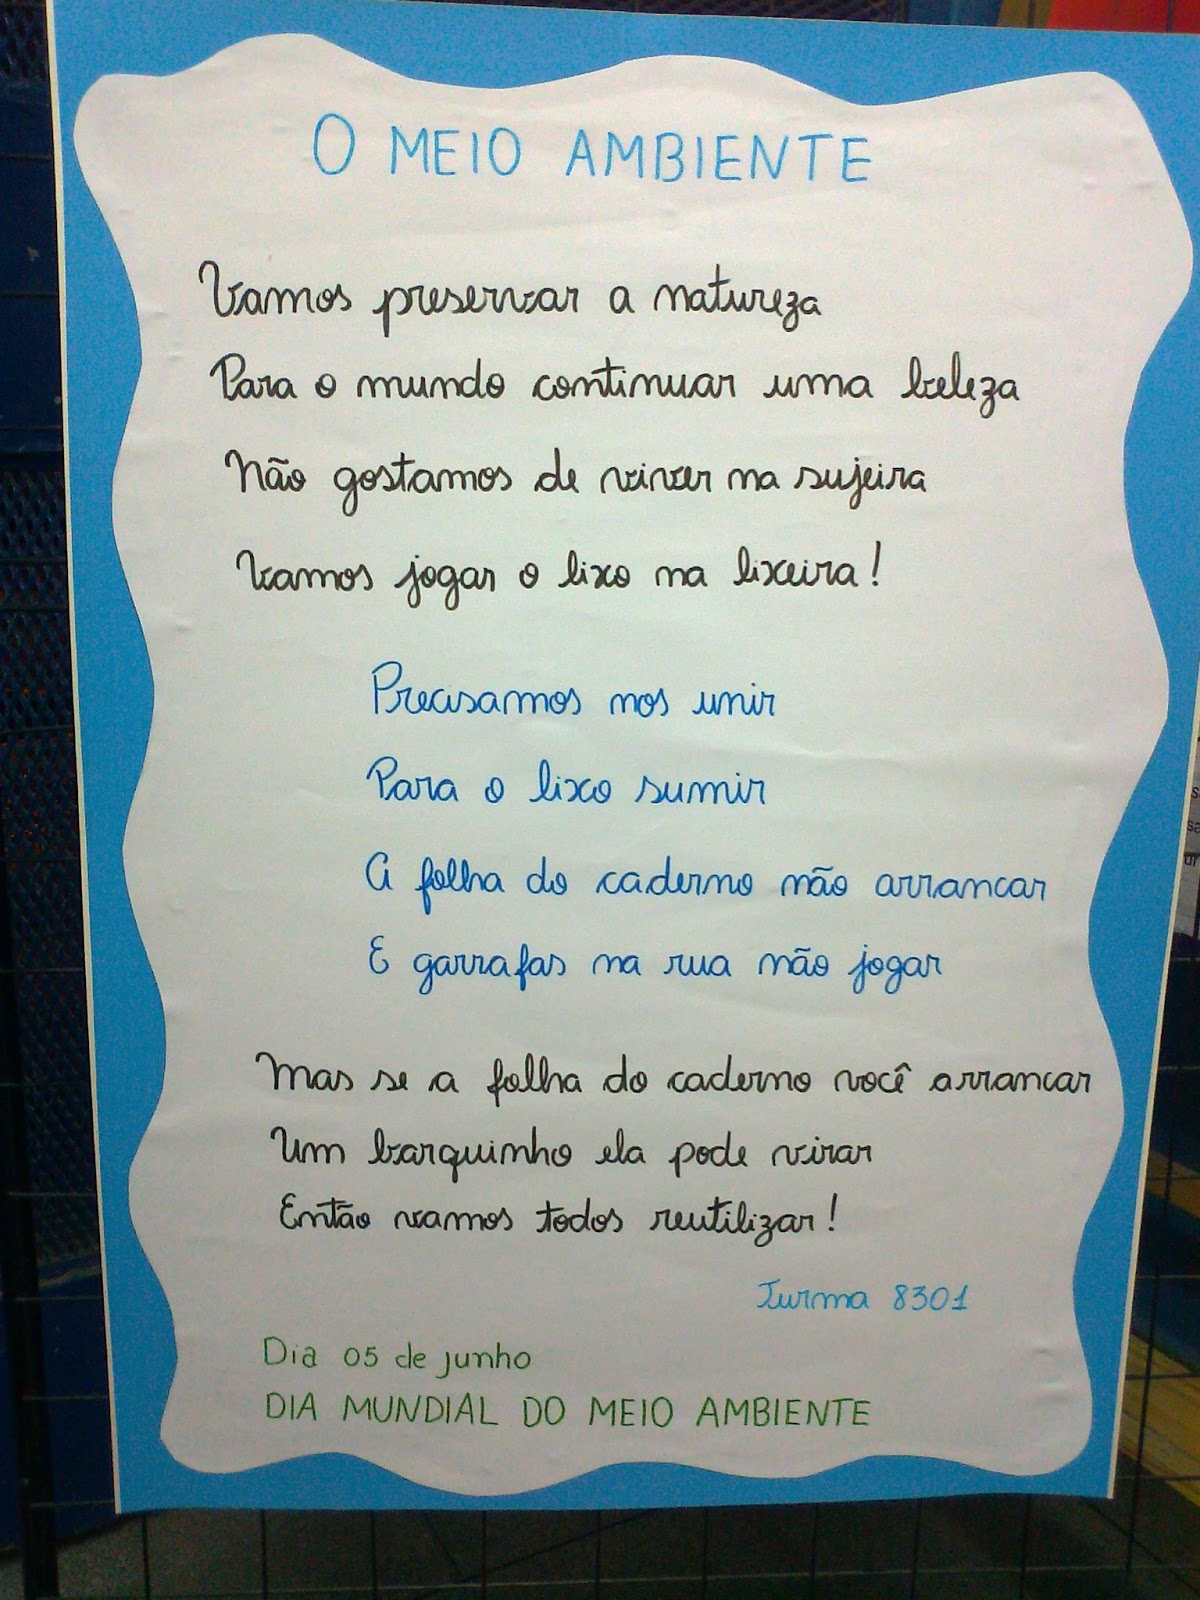 O MEIO AMBIENTE
Vamos preservar a natureza
Para o mundo continuar uma beleza
Não gostamos de viver na sujeira
Vamos jogar o lixo na lixeira!
Precisamos nos unir
Para o lixo sumir
A folha do caderno não arrancar
E garrafas na rua não jogar
Mas se a folha do caderno você arrancar
Um barquinho ela pode virar
Então vamos todos reutilizar!
Turma 8301
Dia 05 de junho
DIA MUNDIAL DO MEIO AMBIENTE